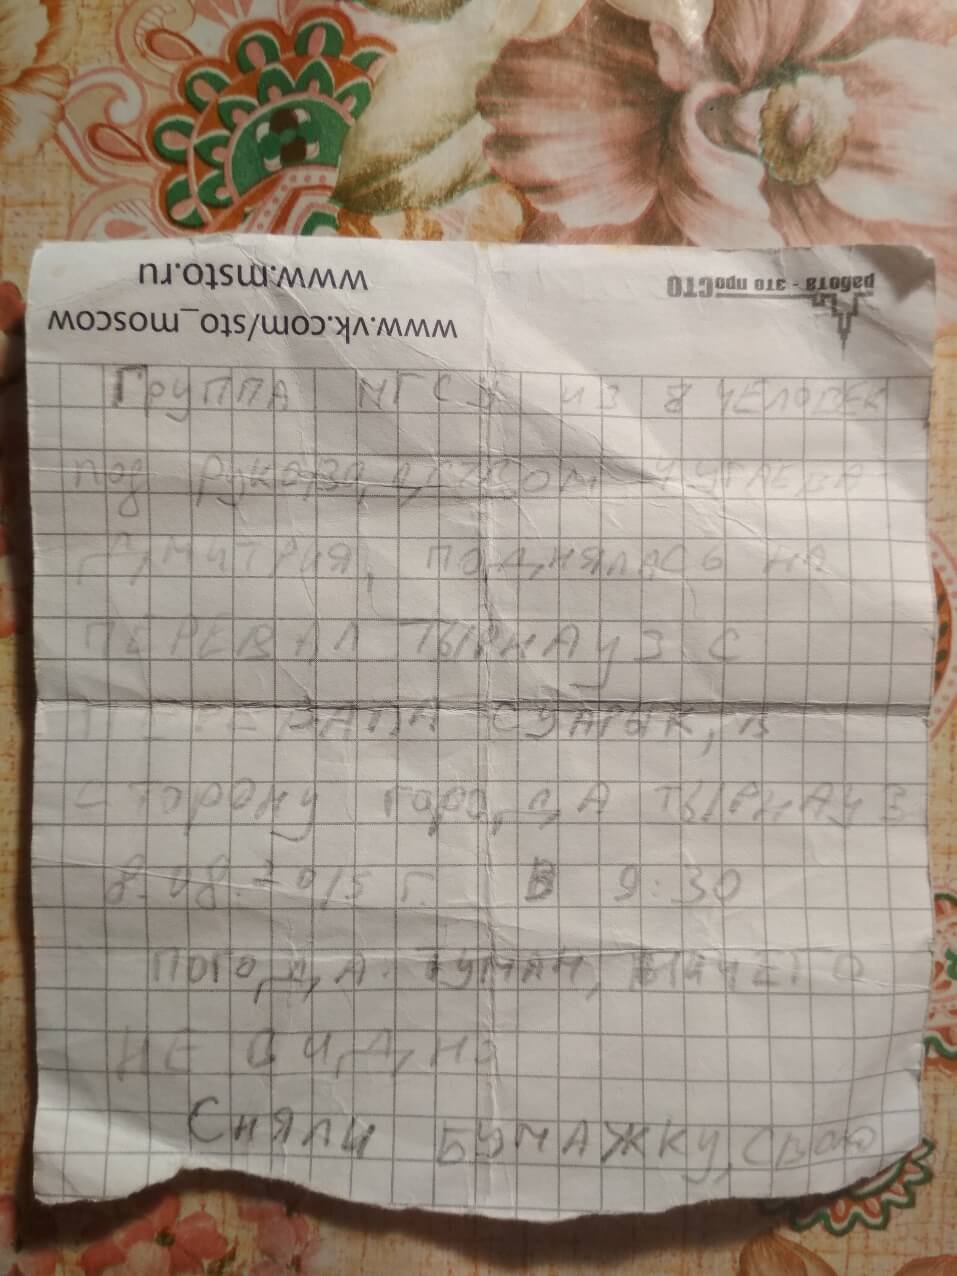 www.msto.ru
www.vk.com/sto_moscow
работа - это проСТО
Группа МГСУ из 8 человек
под руководством Чугрева
Дмитрия, поднялась на
перевал Тырнауз с
перевала Суарык, в
сторону города Тырнауз
8.08.2015 г. в 9:30
Погода: туман, ничего
не видно
Сняли бумажку, свою